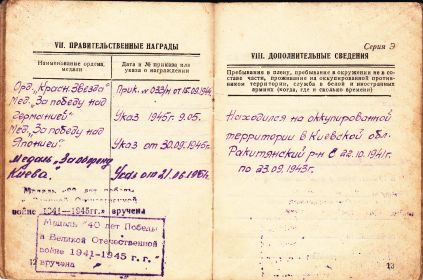 VII. ПРАВИТЕЛЬСТВЕННЫЕ НАГРАДЫ
Наименование ордена, медали
Дата и № приказа или указа о награждении
Орд. „Красн. Звезда"
Прик. № 033/н от 15.09.1944
Мед. „За победу над
Германией"
Указ 1945г 9.05.
Мед. „За победу над
Японией"
Указ от 30.09.1945г
Медаль „За оборону
Киева."
Указ от 21.06.
войне 1941—1945гг.» вручена
Медаль "40 лет Победы
в Великой Отечественной
войне 1941-1945 г. г."
вручена
12
Серия Э
VIII. ДОПОЛНИТЕЛЬНЫЕ СВЕДЕНИЯ
Пребывание в плену, пребывание в окружении не в составе части, проживание на оккупированной противником территрии, служба в белой и иностранных армиях (когда, где и сколько времени)
Находился на оккупированной
территории в Киевской обл.
Ракитянский р-н С 22.10.1941г.
по 23.09.1943г.
13